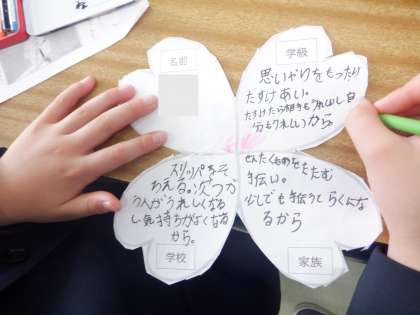 名前
学級
思いやりをもったり
たすけあい。
たすけたら相手もうれしし自
分もうれしいから
スリッパをそ
ろえる。次つか
う人がうれしくなる
し気持ちがよくなる
から。
学校
せんたくものをたたむ
手伝い。
少しでも手伝うてらくにな
るから
家族